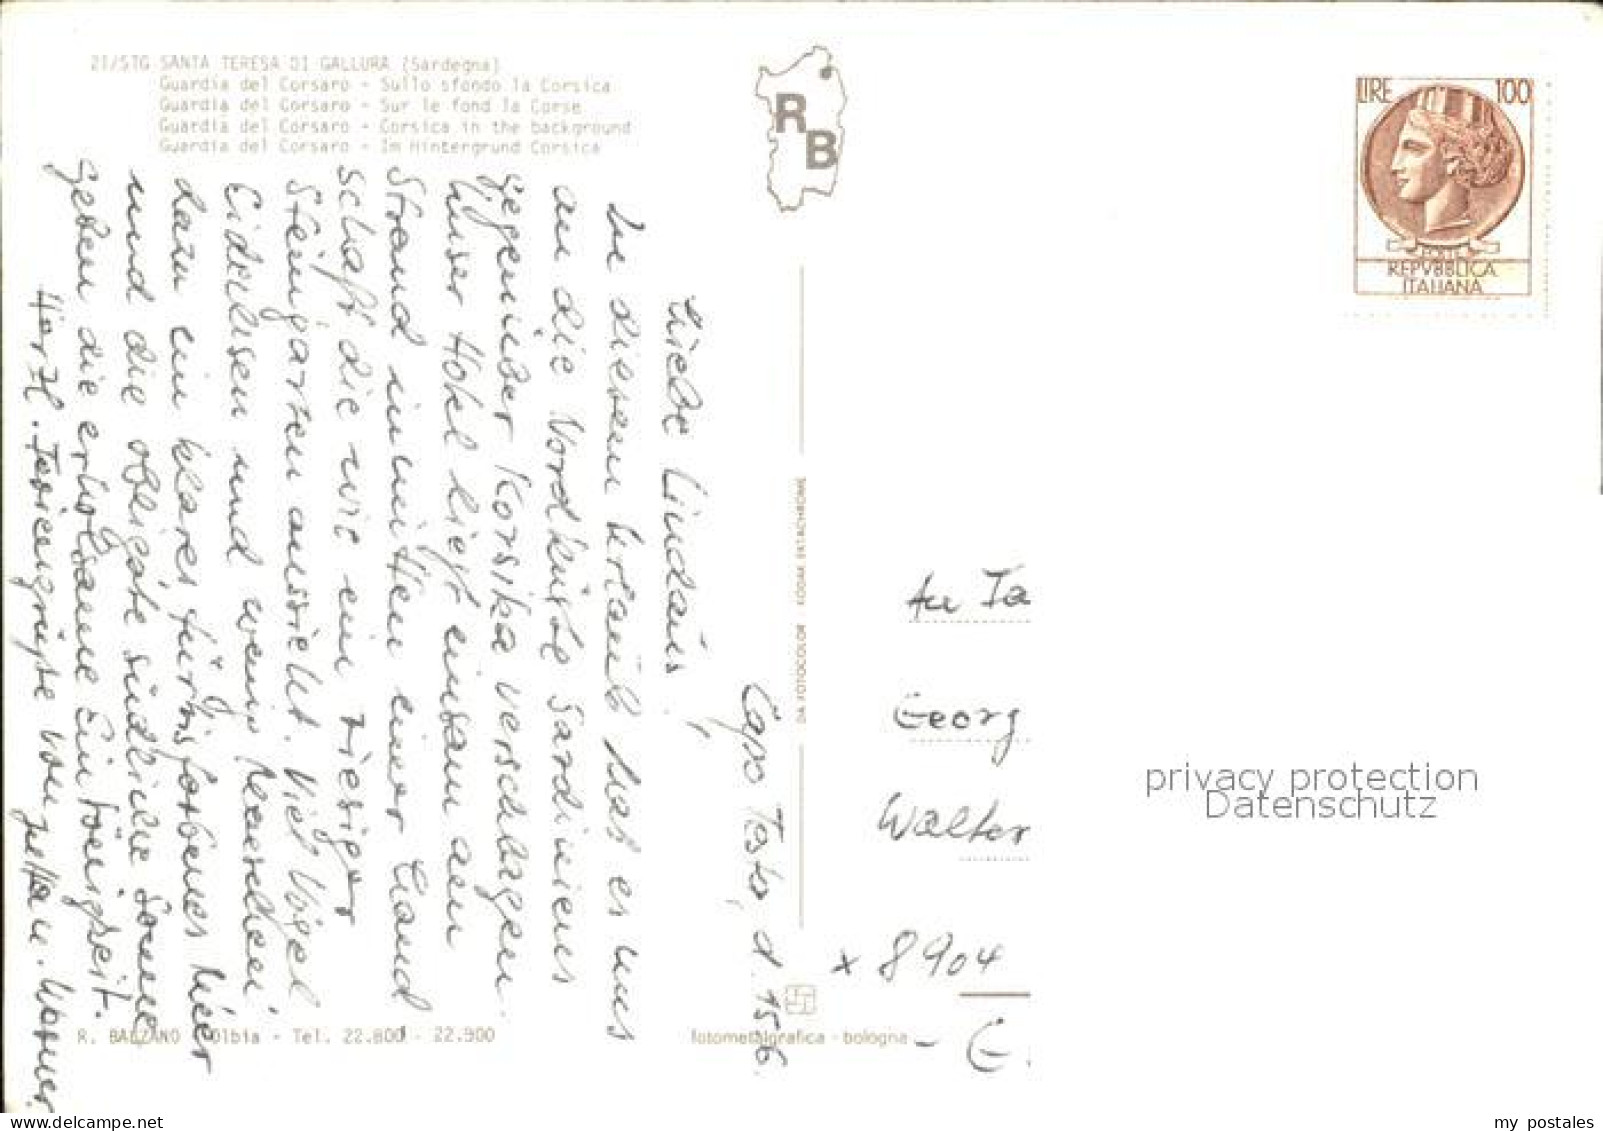 21/STG SANTA TERESA DI GALLURA (Sardegna)
Guardia del Corsaro - Sullo sfondo la Corsica
Guardia del Corsaro - Sur le fond la Corse
Guardia del Corsaro - Corsica in the background
Guardia del Corsaro - Im Hintergrund Corsica
RB
LIRE 100
POSTE
REPVBBLICA
ITALIANA
Capo Testa, d. 15.6.
Liebe Lindaus,
In diesem Urlaub hat es uns
an die Nordküste Sardiniens
gegenüber Korsika verschlagen.
Unser Hotel liegt einsam am
Strand inmitten einer Land
schaft die wie ein riesiger
Steingarten aussieht. Viel Vögel
Eidechsen und wenig Menschen
dazu ein klares türkisfarbenes Meer
und die obligate südliche Sonne
geben die erholsame Eintönigkeit.
Herzl. Feriengrüße von
DA FOTOCOLOR KODAK EKTACHROME
An Fa
Georg
Walter
x 8904
- E
privacy protection
Datenschutz
R. BALZANO Olbia - Tel. 22.800 - 22.900
fotometalgrafica - bologna
my postales